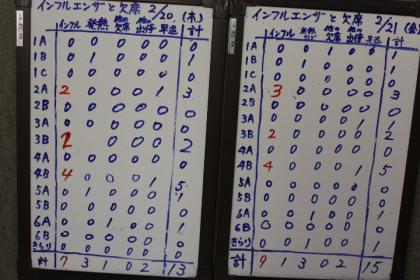 インフルエンザと欠席 2/20.(木)
インフル 発熱 他の欠席 他の出停 早退 計
1A 0 0 0 0 0 0
1B 0 1 0 0 0 1
1C 0 0 0 0 0 0
2A 2 0 0 0 1 3
2B 0 0 0 0 0 0
3A 0 0 0 0 0 0
3B 2 0 0 0 0 2
4A 0 0 0 0 0 0
4B 4 0 0 0 1 5
5A 0 1 0 0 0 1
5B 0 0 0 0 0 0
6A 0 0 1 0 0 1
6B 0 0 0 0 0 0
きらり 0 0 0 0 0 0
計 7 3 1 0 2 13
インフルエンザと欠席 2/21(金)
インフル 発熱 他の欠席 他の出停 早退 計
1A 0 0 1 0 0 1
1B 0 0 0 0 0 0
1C 0 0 0 0 0 0
2A 3 0 0 0 0 3
2B 0 0 0 0 0 0
3A 0 0 0 0 1 1
3B 2 0 0 0 0 2
4A 0 0 0 0 0 0
4B 4 0 0 0 1 5
5A 0 0 0 0 0 0
5B 0 0 0 0 0 0
6A 0 0 1 0 0 1
6B 0 0 0 0 0 0
きらり 0 1 0 0 0 1
計 9 1 3 0 2 15